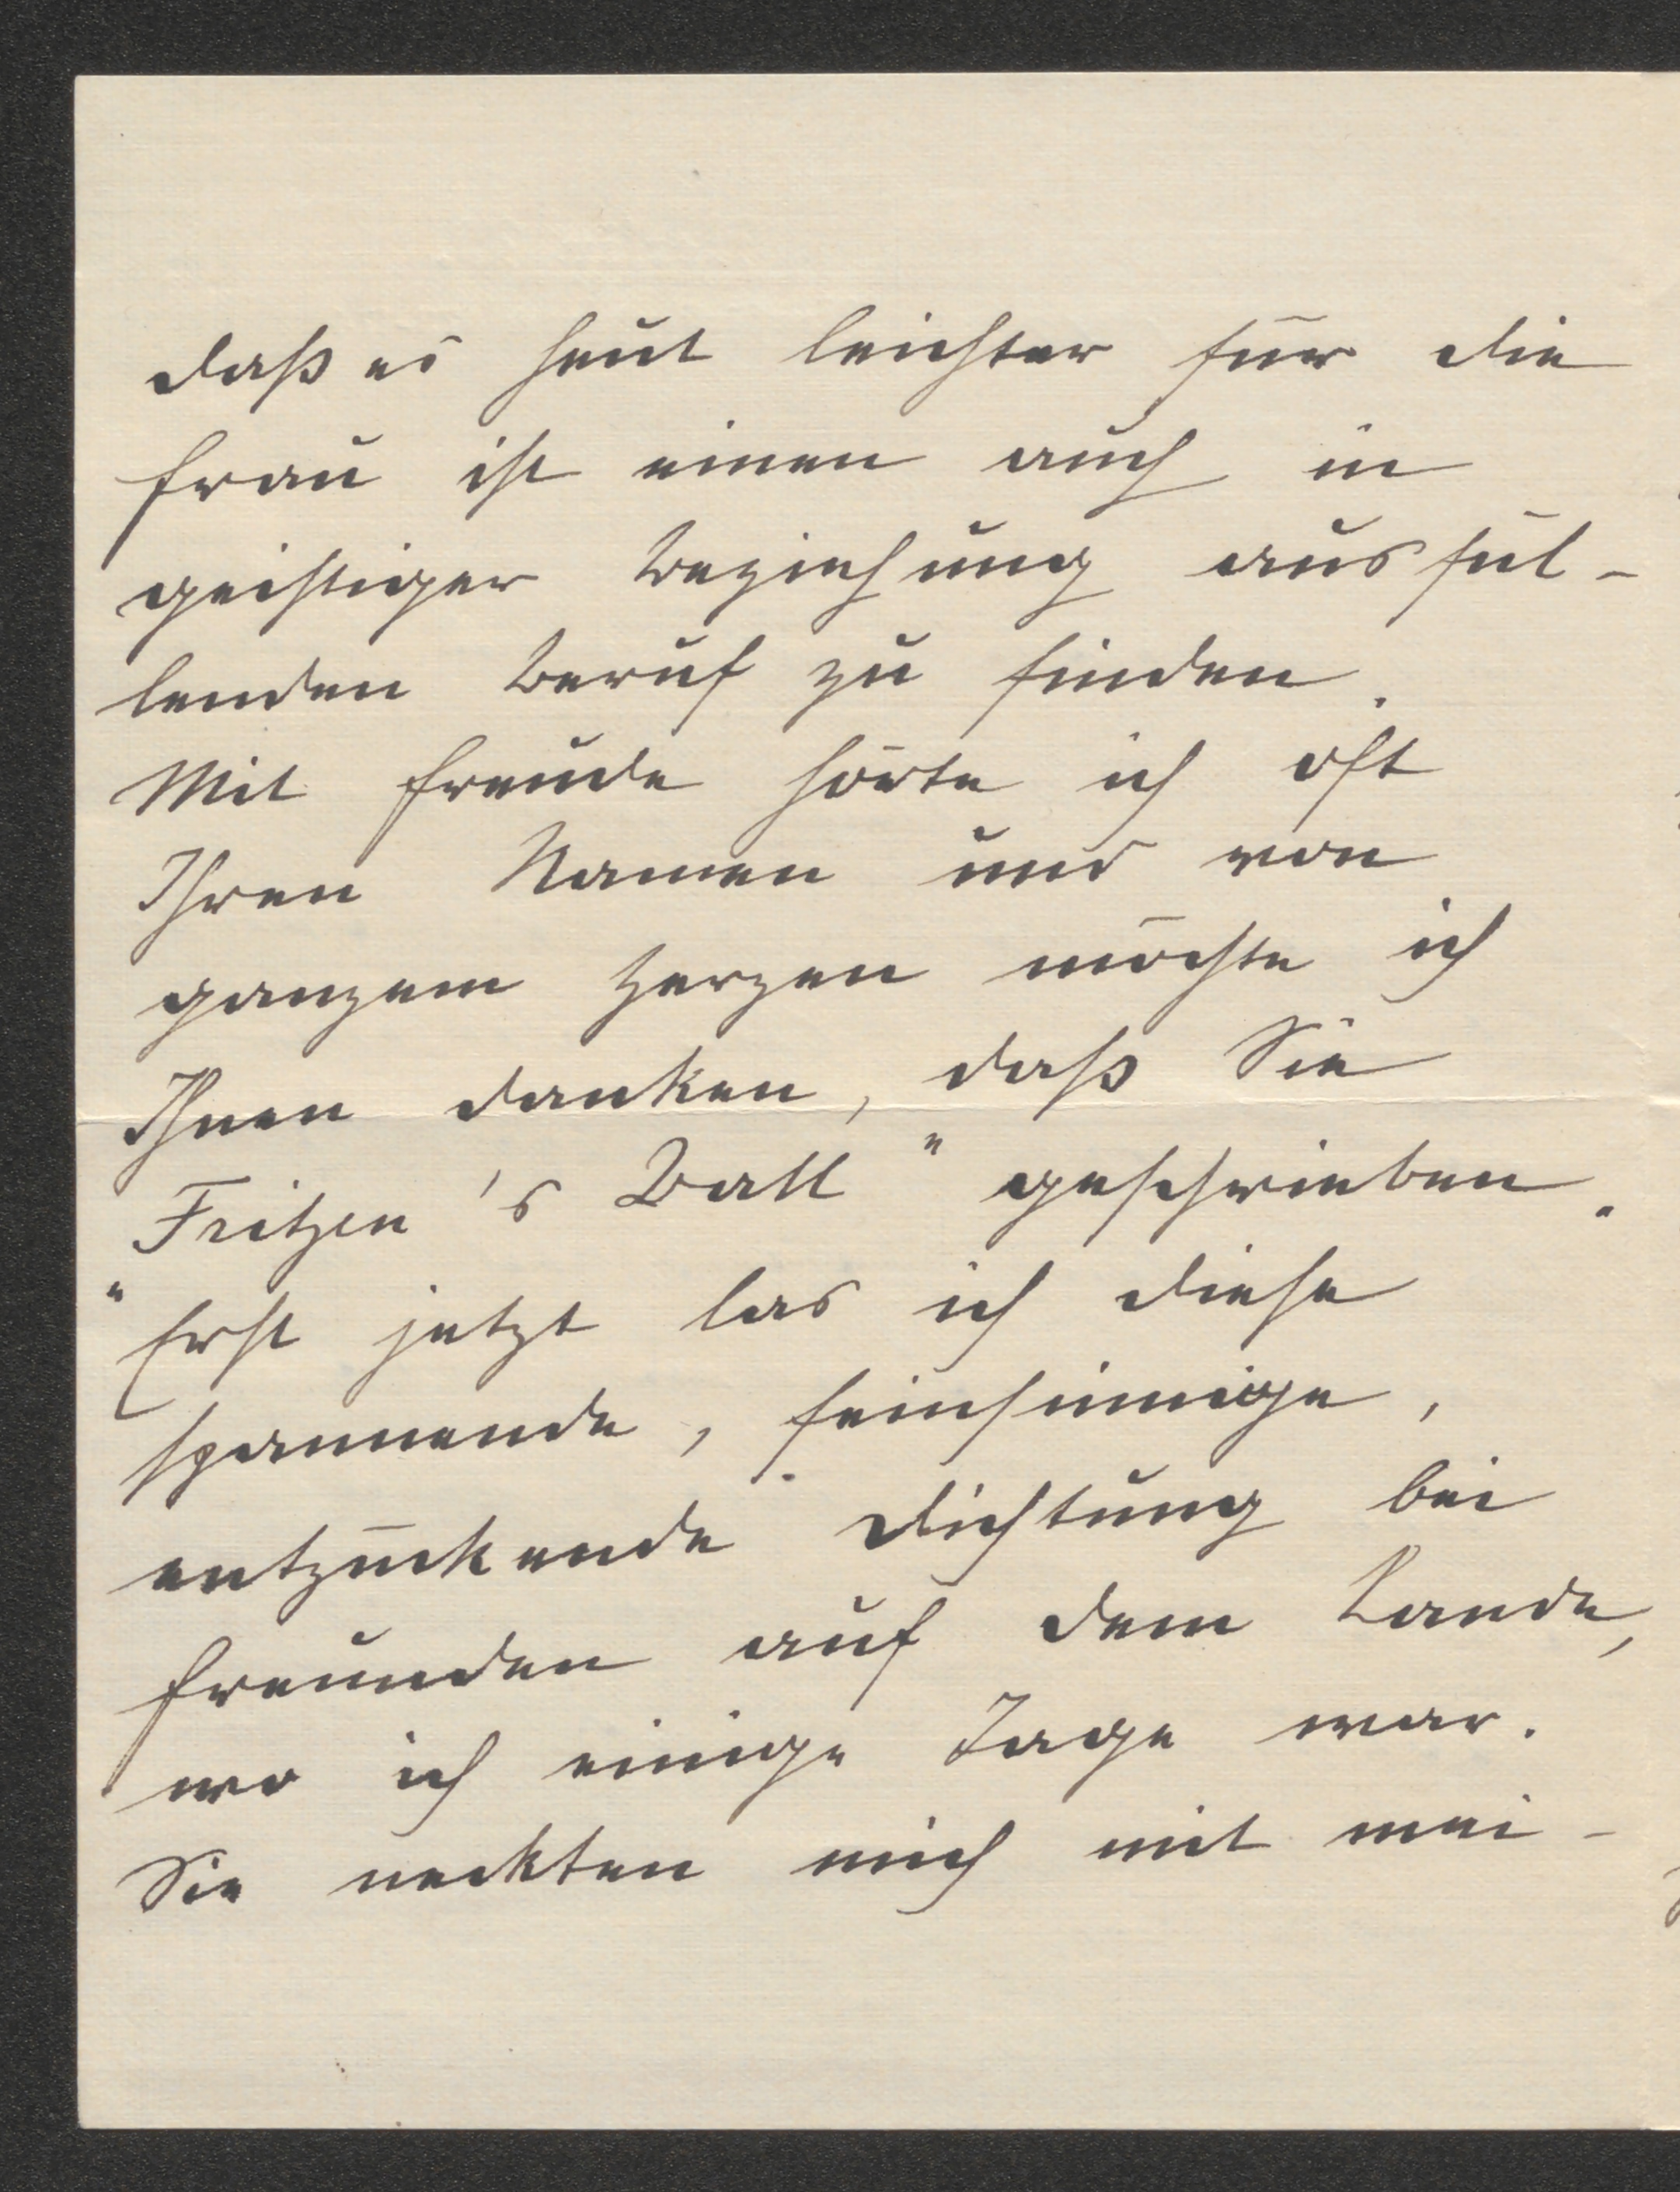 daß es heut leichter für die
Frau ist einen auch in
geistiger Beziehung ausfül-
lenden Beruf zu finden.
Mit Freude hörte ich oft
Ihren Namen und von
ganzem Herzen möchte ich
Ihnen danken, daß Sie
Fritzen's Ball" geschrieben.
"Erst jetzt las ich diese
spannende, feinsinnige,
entzückende Dichtung bei
Freunden auf dem Lande,
wo ich einige Tage war.
Sie neckten mich mit mei-